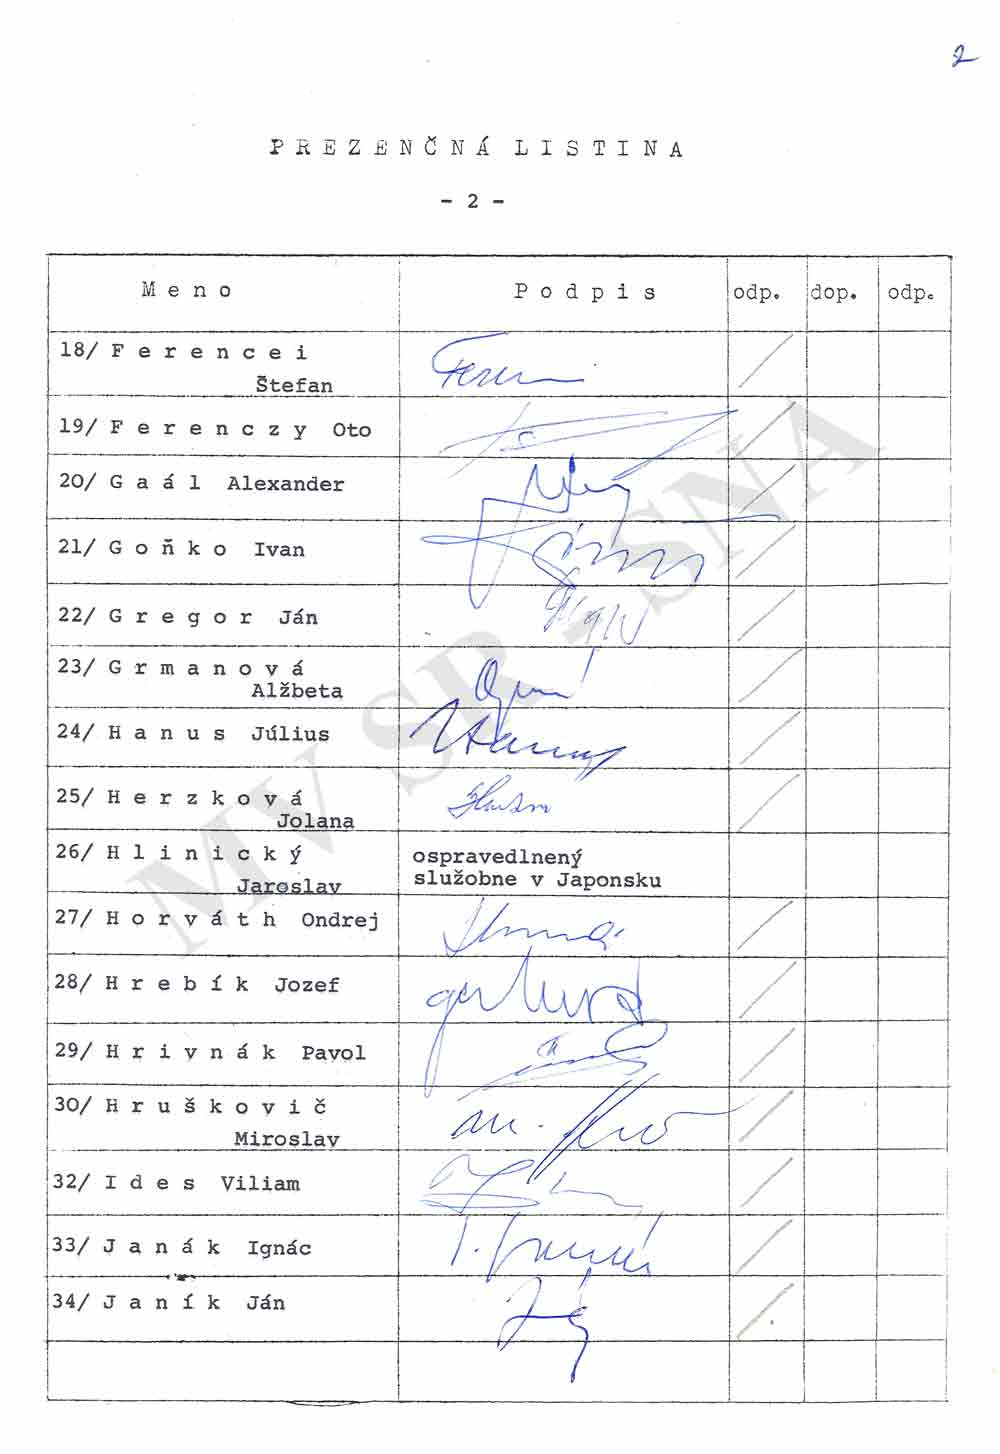 2
PREZENČNÁ LISTINA
- 2 -
Meno Podpis odp. dop. odp.
18/ Ferencei
Štefan
19/ Ferenczy Oto
20/ Gaál Alexander
21/ Goňko Ivan
22/ Gregor Ján
23/ Grmanová
Alžbeta
24/ Hanus Július
25/ Herzková
Jolana
26/ Hlinický ospravedlnený
Jaroslav služobne v Japonsku
27/ Horváth Ondrej
28/ Hrebík Jozef
29/ Hrivnák Pavol
30/ Hruškovič
Miroslav
32/ Ides Viliam
33/ Janák Ignác
34/ Janík Ján
MV SR - SNA